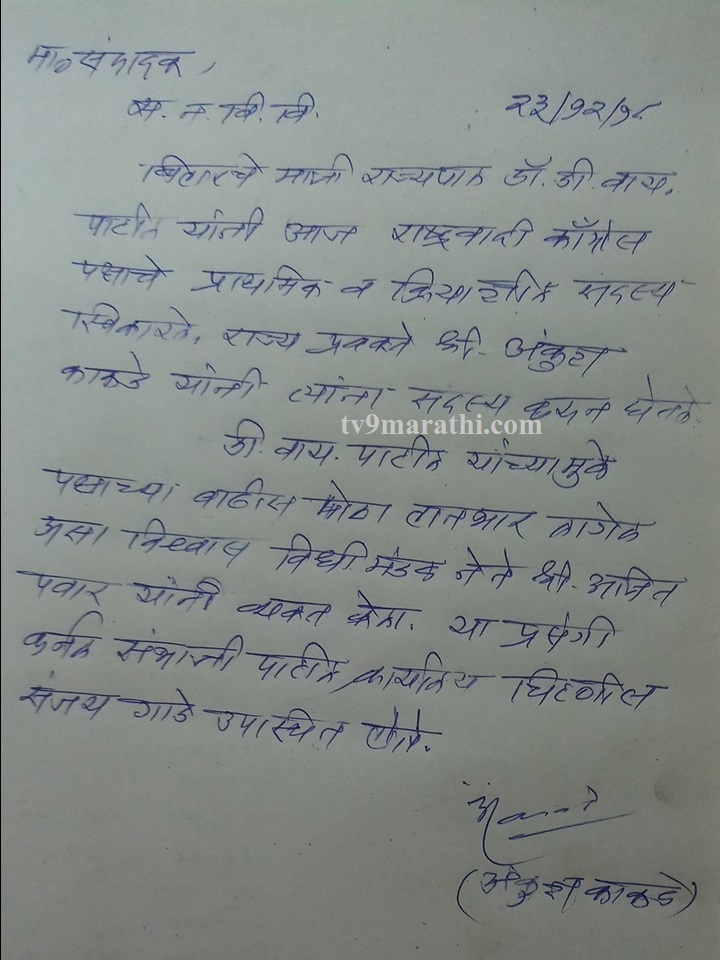 मा. संपादक,
स. न. वि. वि. २३/१२/१८
बिहारचे माजी राज्यपाल डॉ. डी. वाय.
पाटील यांनी आज राष्ट्रवादी काँग्रेस
पक्षाचे प्राथमिक व क्रियाशील सदस्य
स्विकारले. राज्य प्रवक्ते श्री. अंकुश
काकडे यांनी त्यांना सदस्य करून घेतले.
tv9marathi.com
डी. वाय. पाटील यांच्यामुळे
पक्षाच्या वाढीस मोठा हातभार लागेल
असा विश्वास विधीमंडळ नेते श्री. अजित
पवार यांनी व्यक्त केला. या प्रसंगी
कर्नल संभाजी पाटील, कार्यालय चिटणीस
संजय गाडे उपस्थित होते.
(अंकुश काकडे)